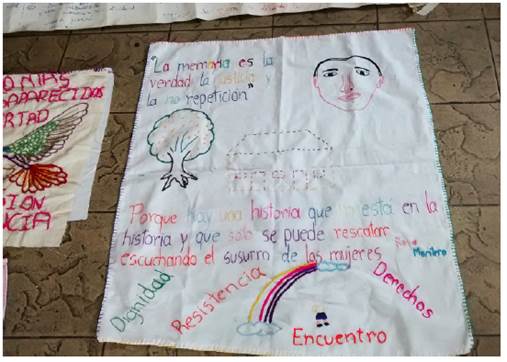 "La memoria es la
verdad, la justicia y
la no repetición"
Porque hay una historia que no está en la
historia y que solo se puede rescatar
escuchando el susurro de las mujeres
Montero
Dignidad
Resistencia
Derechos
Encuentro
APARECIDOS
RTAD
ION
NCIA